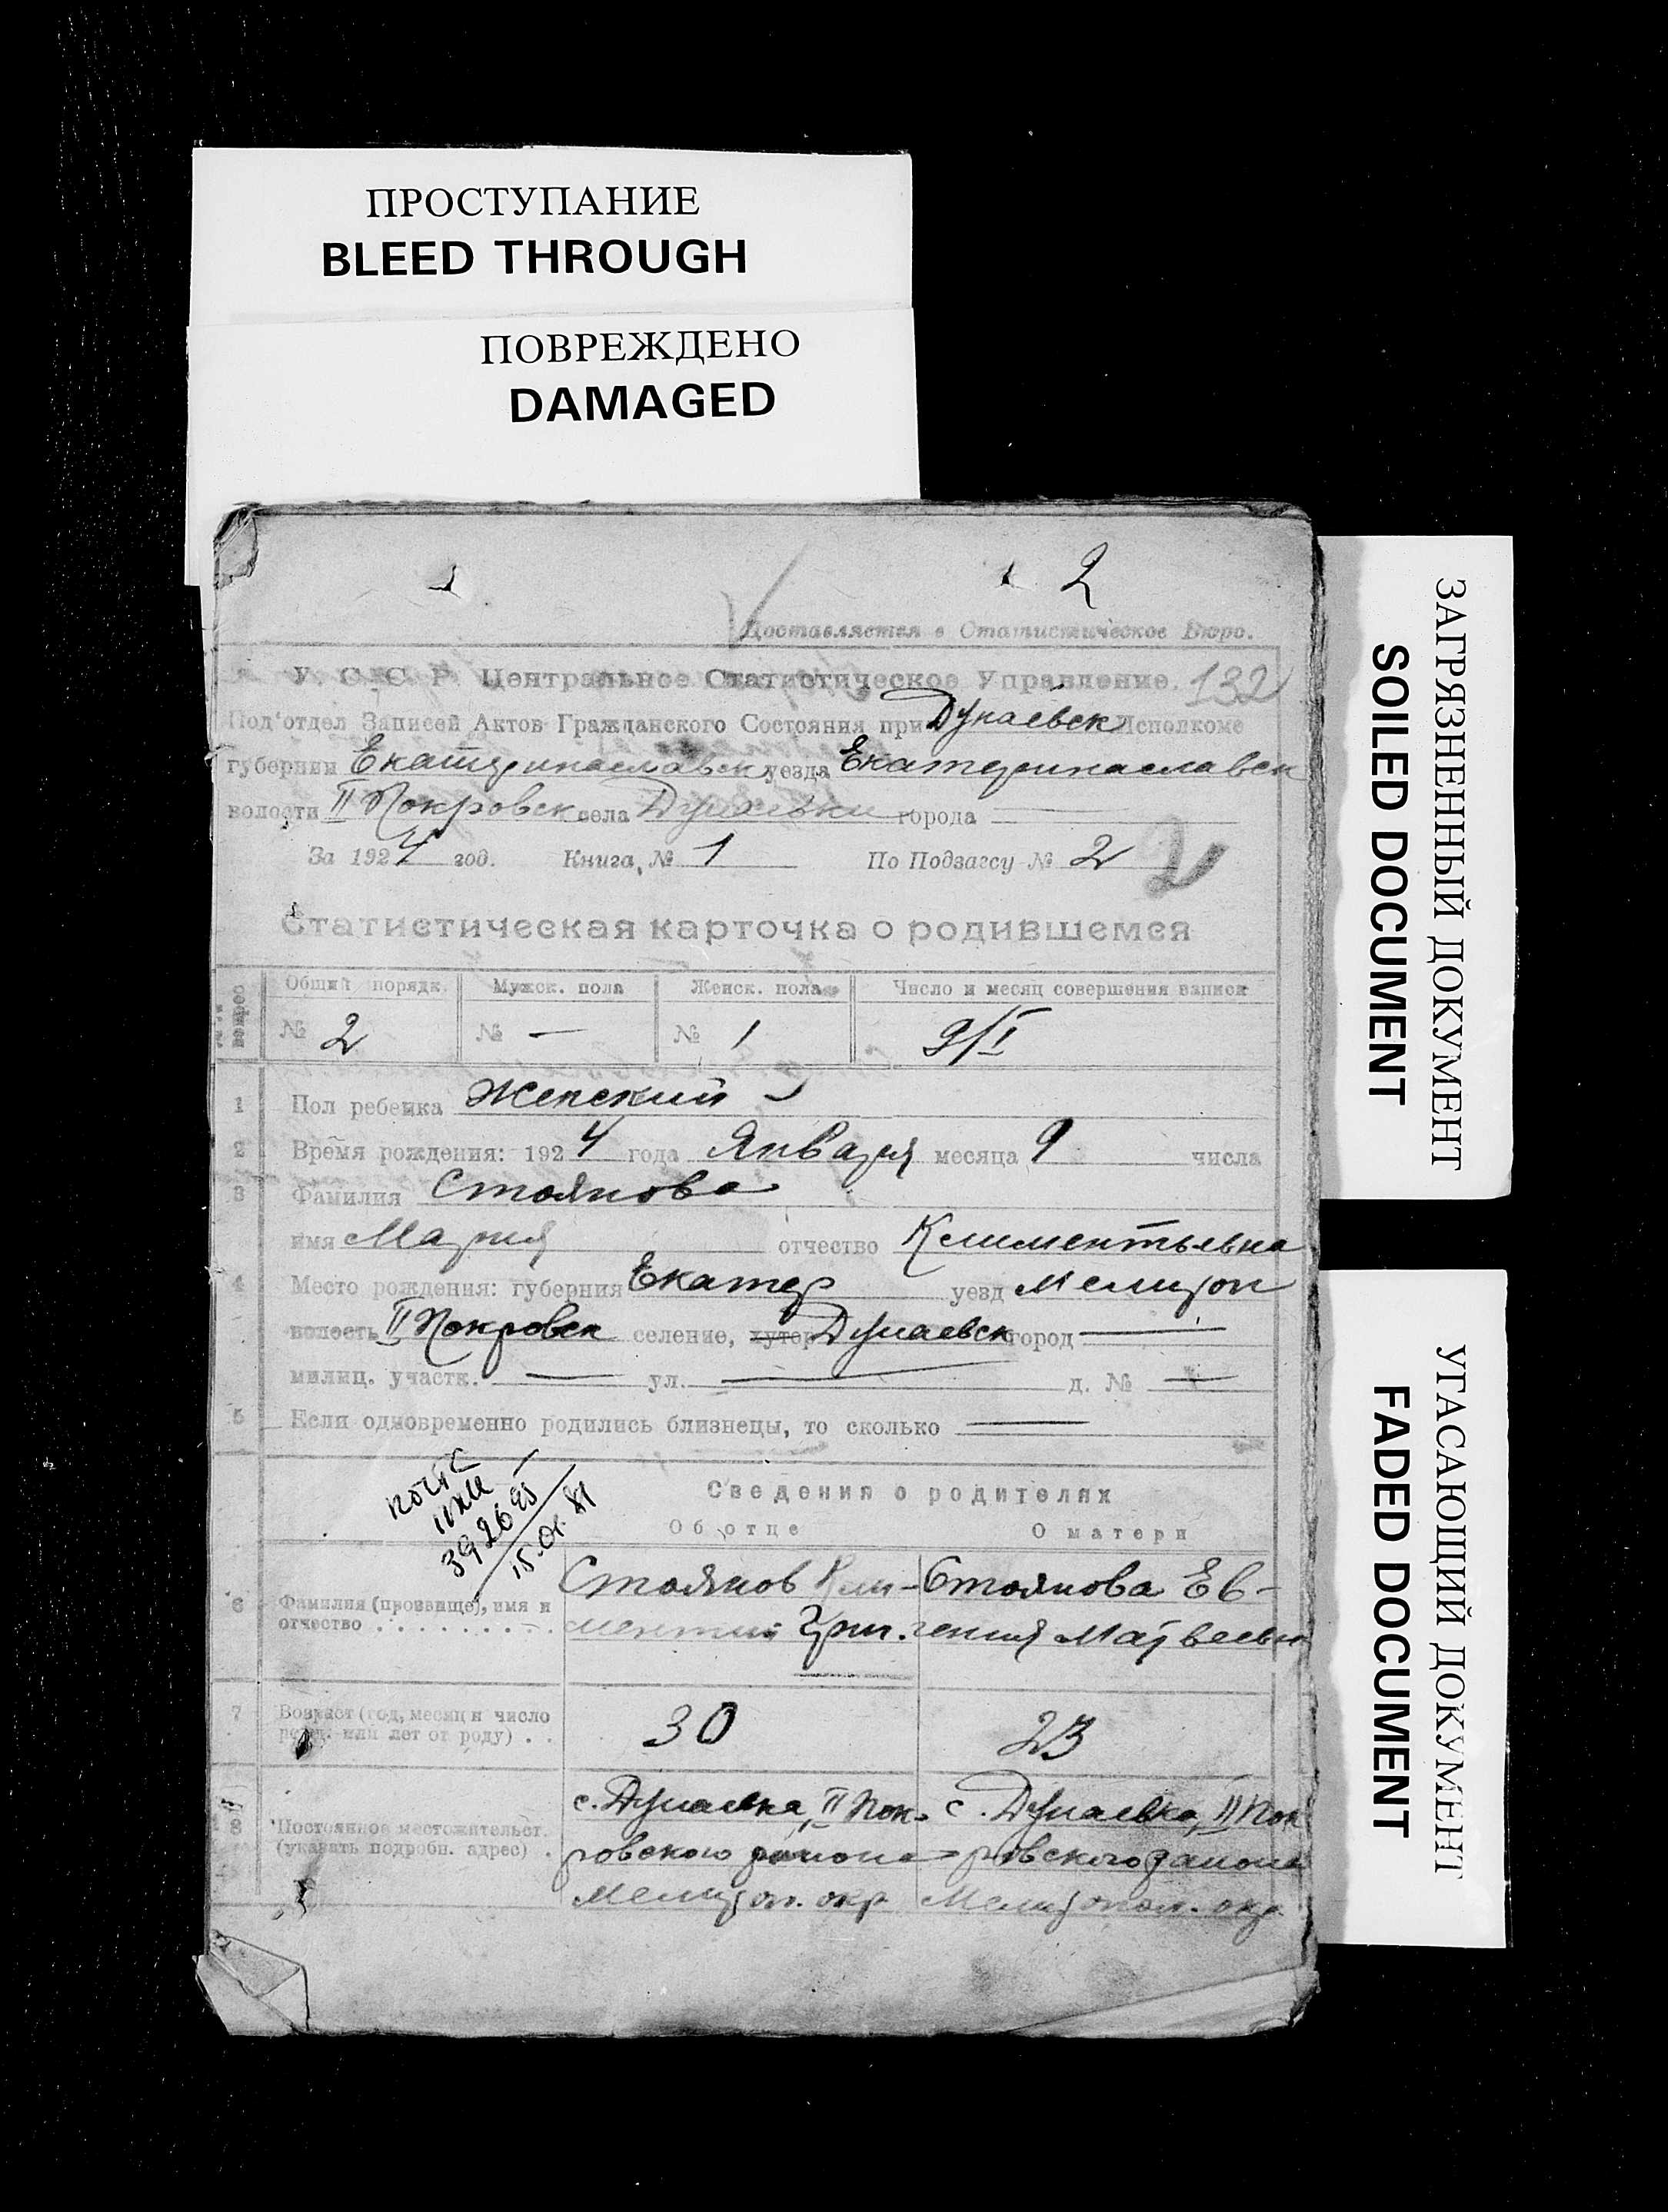 ПРОСТУПАНИЕ
BLEED THROUGH
ПОВРЕЖДЕНО
DAMAGED
ЗАГРЯЗНЕННЫЙ ДОКУМЕНТ
SOILED DOCUMENT
УГАСАЮЩИЙ ДОКУМЕНТ
FADED DOCUMENT
2
Доставляется в Статистическое Бюро.
У. С. С. Р. Центральное Статистическое Управление. 132
Под'отдел Записей Актов Гражданского Состояния при Дунаевск Исполкоме
губернии Екатеринославск уезда Екатеринаславск
волости II Покровск села Дунаевки города —
За 1924 год. Книга, № 1 По Подзагсу № 2 2
Статистическая карточка о родившемся
Общий порядк. Мужск. пола Женск. пола Число и месяц совершения записи
№ 2 № — № 1 9/I
1 Пол ребенка Женский
2 Время рождения: 1924 года Января месяца 9 числа
3 Фамилия Стоянова
имя Мария отчество Климентьевна
4 Место рождения: губерния Екатер уезд Мелитоп
волость II Покровск селение, хутор Дунаевск город —
милиц. участк. — ул. — д. № —
5 Если одновременно родились близнецы, то сколько —
392695
15.01.81
Сведения о родителях
Об отце О матери
6 Фамилия (прозвище), имя и отчество
Стоянов Кли-
ментий Григ.
Стоянова Ев-
гения Матвеевн
7 Возраст (год, месяц и число рожд. или лет от роду) . .
30 23
8 Постоянное местожительст. (указать подробн. адрес) .
с. Дунаевка, II Пок-
ровского района
Мелитоп. окр
с. Дунаевка, II Пок
ровского района
Мелитопол. окр.